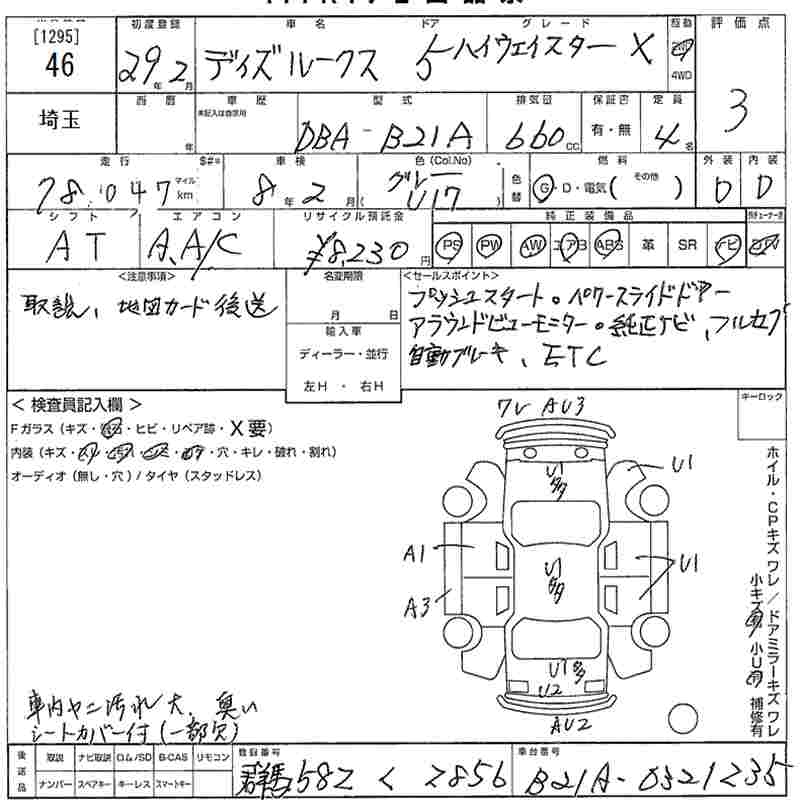 [1295]
46
初度登録
29年 2月
車名
デイズルークス
ドア
5
グレード
ハイウェイスター X
駆動
2WD
4WD
評価点
3
埼玉
西暦
年
車歴
未記入は自家用
型式
DBA-B21A
排気量
660cc
保証書
有・無
定員
4名
走行
78,047
マイル
km
S#*
車検
8年 2月
色(Col.No)
グレー
U17
色替
燃料
G・D・電気( その他 )
外装
D
内装
D
シフト
AT
エアコン
A.A/C
リサイクル預託金
¥8,230円
純正装備品
PS PW AW エアB ABS 革 SR ナビ
<注意事項>
取説、地図カード後送
名変期限
月 日
輸入車
ディーラー・並行
左H ・ 右H
<セールスポイント>
プッシュスタート。パワースライドドアー
アラウンドビューモニター。純正ナビ、フルセグ
自動ブレーキ、ETC
< 検査員記入欄 >
Fガラス (キズ・飛石・ヒビ・リペア跡・X要)
内装 (キズ・・穴・キレ・破れ・割れ)
オーディオ (無し・穴) / タイヤ (スタッドレス)
キーロック
ワレ AU3
U1
多
U1
A1
A3
U1
多
U1
U1多
U2
AU2
ホイル・CPキズ ワレ / ドアミラーキズ ワレ
小キズ 小U 補修有
車内ヤニ汚れ大、臭い
シートカバー付(一部欠)
後送品
取説 ナビ取説 CD/SD B-CAS リモコン
ナンバー スペアキー キーレス スマートキー
登録番号
群馬 582 く 2856
車台番号
B21A-0321235